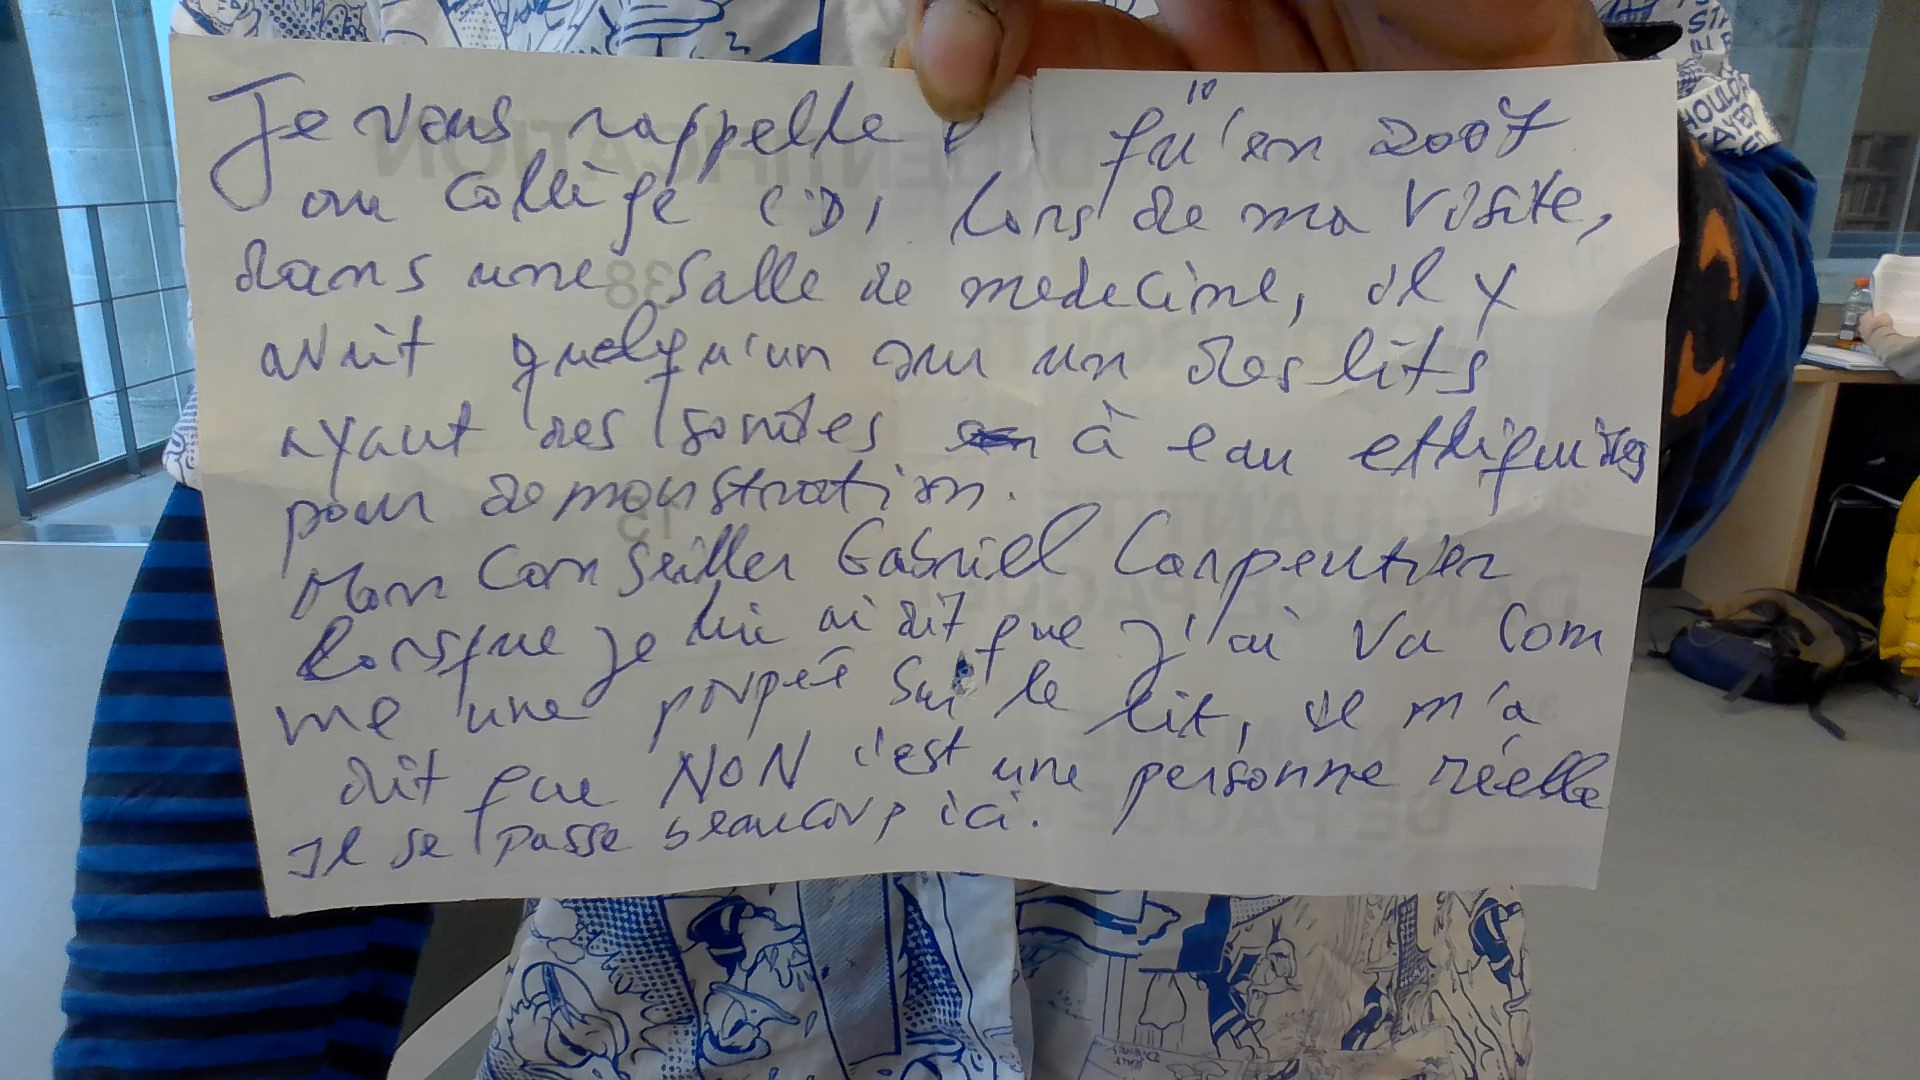 10
Je vous rappelle qu'en 2007
au collège CDI lors de ma visite,
dans une salle de medecine, il y
avait quelqu'un sur un des lits
ayant des sondes à eau
pour demonstration.
Mon Conseiller Gabriel Carpentier
lorsque je lui ai dit que j'ai vu Com
me une poupée sur le lit, il m'a
dit que NON c'est une personne réelle
Il se passe beaucoup ici.